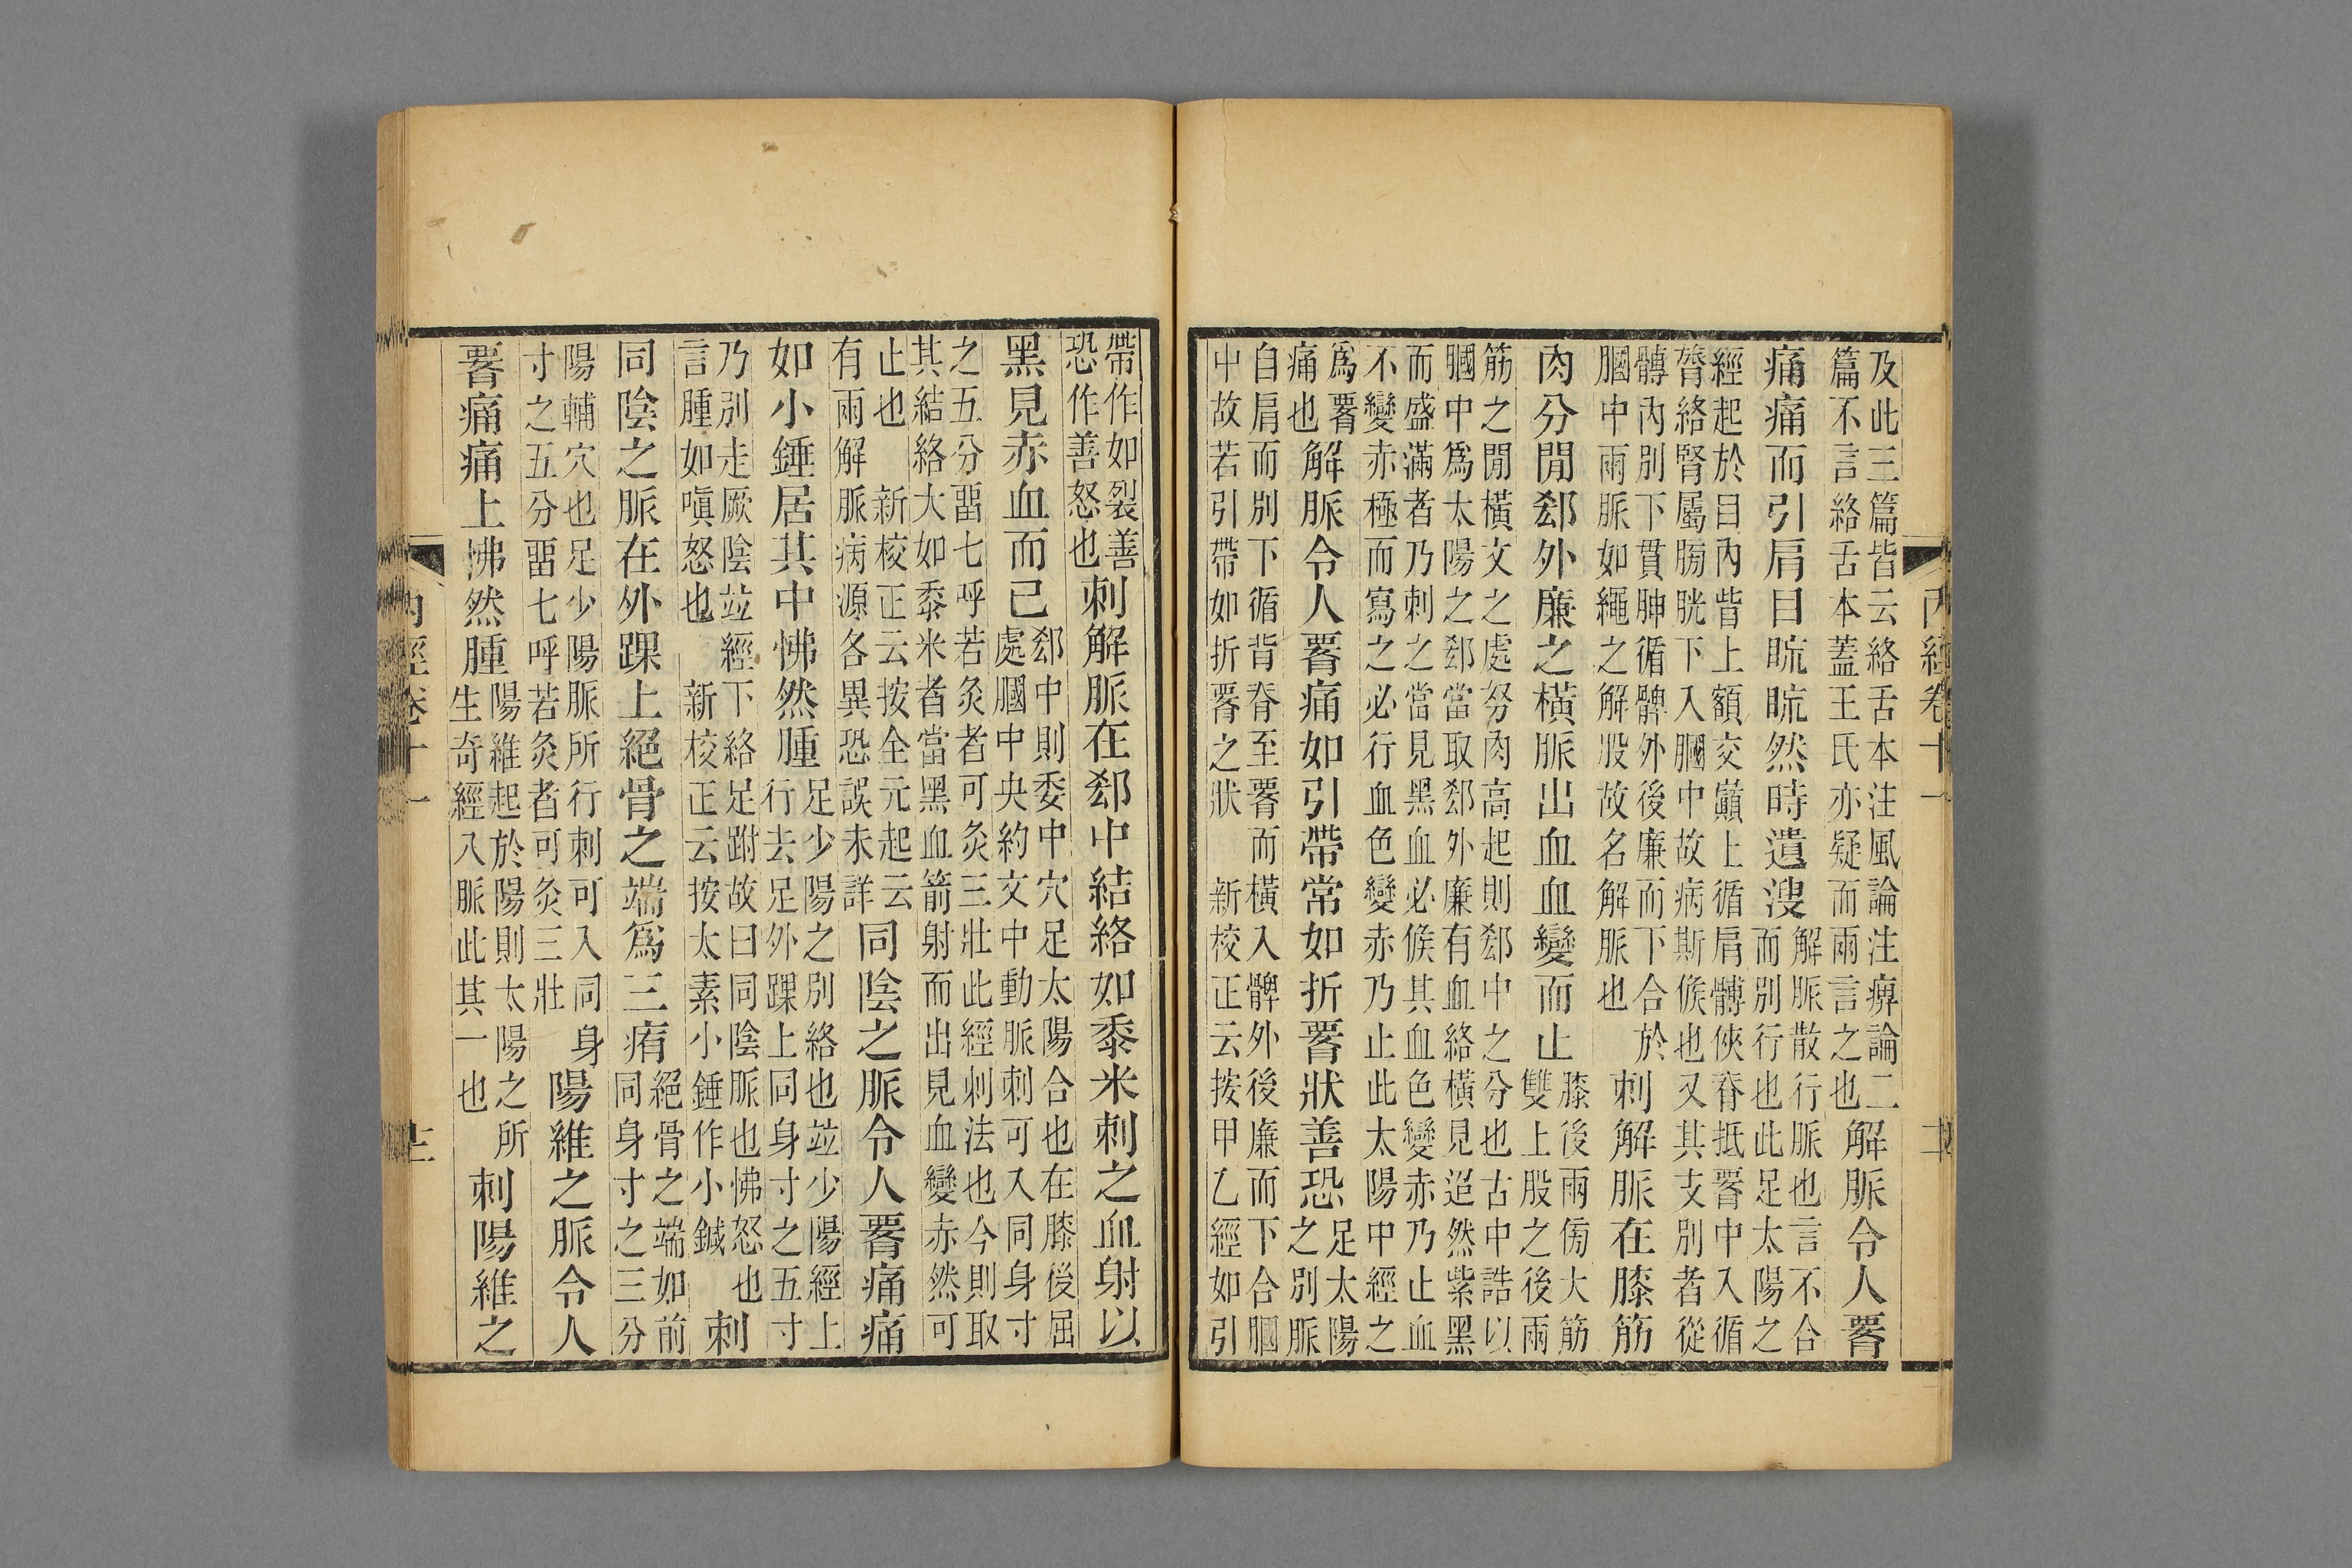 及此三篇皆云絡舌本注風論注痹論二
篇不言絡舌本蓋王氏亦疑而兩言之也
解脈令人腰
痛痛而引肩目䀮䀮然時遺溲
解脈散行脈也言不合
而別行也此足太陽之
經起於目內眥上額交巓上循肩髆俠脊抵腰中入循
膂絡腎屬膀胱下入膕中故病斯候也又其支別者從
髆內別下貫胂循髀外後廉而下合於
膕中兩脈如繩之解股故名解脈也
刺解脈在膝筋
肉分閒郄外廉之橫脈出血血變而止
膝後兩傍大筋
雙上股之後兩
筋之閒橫文之處努肉高起則郄中之分也古中誥以
膕中爲太陽之郄當取郄外廉有血絡橫見迢然紫黑
而盛滿者乃刺之當見黑血必候其血色變赤乃止血
不變赤極而寫之必行血色變赤乃止此太陽中經之
爲腰
痛也
解脈令人腰痛如引帶常如折腰狀善恐
足太陽
之別脈
自肩而別下循背脊至腰而橫入髀外後廉而下合膕
中故若引帶如折腰之狀 新校正云按甲乙經如引
帶作如裂善
恐作善怒也
刺解脈在郄中結絡如黍米刺之血射以
黑見赤血而已
郄中則委中穴足太陽合也在膝後屈
處膕中央約文中動脈刺可入同身寸
之五分畱七呼若灸者可灸三壯此經刺法也今則取
其結絡大如黍米者當黑血箭射而出見血變赤然可
止也 新校正云按全元起云
有兩解脈病源各異恐誤未詳
同陰之脈令人腰痛痛
如小錘居其中怫然腫
足少陽之別絡也竝少陽經上
行去足外踝上同身寸之五寸
乃別走厥陰竝經下絡足跗故曰同陰脈也怫怒也
言腫如嗔怒也 新校正云按太素小錘作小鍼
刺
同陰之脈在外踝上絕骨之端爲三痏
絕骨之端如前
同身寸之三分
陽輔穴也足少陽脈所行刺可入同身
寸之五分畱七呼若灸者可灸三壯
陽維之脈令人
腰痛痛上怫然腫
陽維起於陽則太陽之所
生奇經八脈此其一也
刺陽維之
內經卷十一